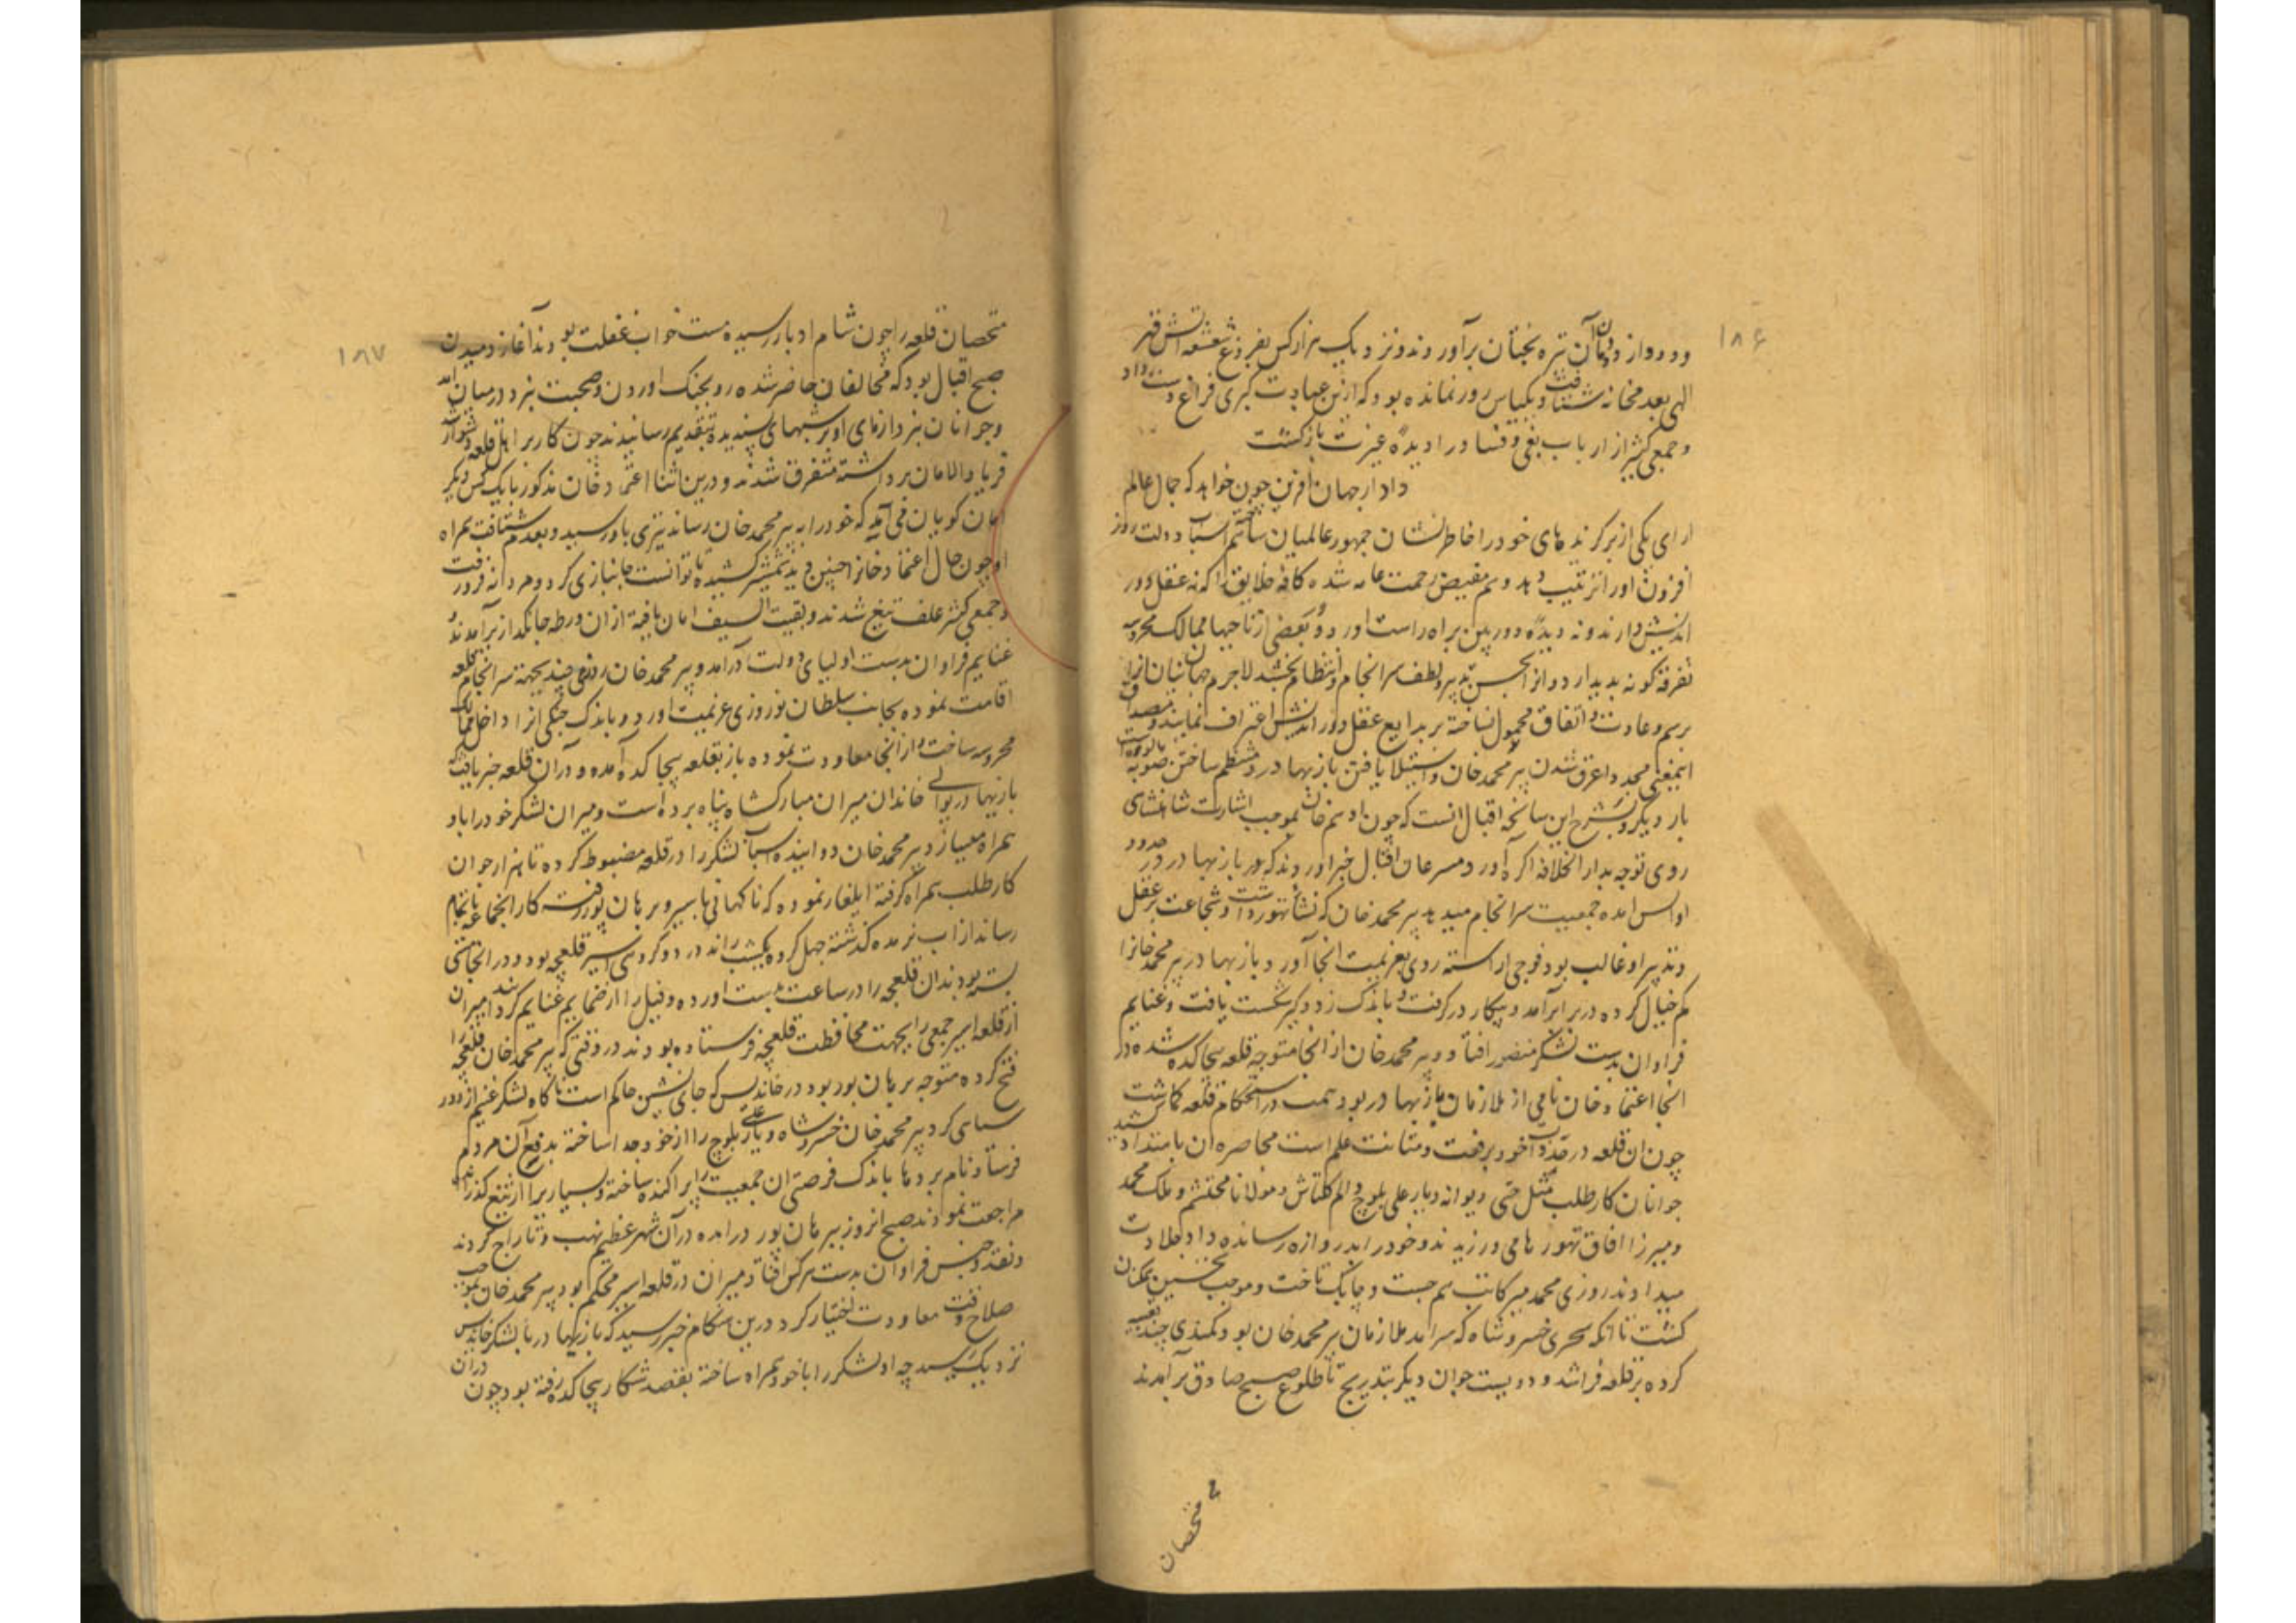 ۱۸۶
ودود از دودمان آن تیره بختان برآوردند و نزدیک هزار کس بفروغ شعشعه آتش قهر
الهی بعدمخانه شتافت و یکپاس روز نمانده بود که ازین عبادت کبری فراغ دست داد
و جمعی کثیر از ارباب بغی و فساد را دیده عبرت باز گشت
دادار جهان آفرین چون خواهد که جمال عالم
ارای یکی از برگزیدهای خود را خاطرنشان جمهور عالمیان سازد اسباب دولت روز
افزون اورا ترتیب دهد و هم مفیض رحمت عامه شده کافه خلایق را که نه عقل دور
اندیش دارند و نه دیده دوربین براه راست اورد و بعضی از ناحیها ممالک محروسه
تفرقه گونه پدیدارد و انرا بحسن تدبیر و لطف سرانجام و انتظام بخشد لاجرم جهانیان انرا
برسم و عادت و اتفاق محمول نساخته بر بدایع عقل دور اندیش اعتراف نمایند و مصداق
اینمعنی مجددا غرق شدن پیر محمد خان و استیلا یافتن بازبهادر و منتظم ساختن صوبه مالوه است
بار دیگر و شرح این سانحه اقبال انست که چون ادهم خان بموجب اشارت شاهنشاهی
روی توجه بدار الخلافه اگره آورد مسرعان اقبال خبر اوردند که بازبهادر در حدود
اواس امده جمعیت سرانجام میدهد پیر محمد خان که نشأ تهور داشت و شجاعت بر عقل
و تدبیر او غالب بود فوجی اراسته روی عزیمت انجا آورد و بازبهادر پیر محمد خانرا
کم خیال کرده در برابر آمد و پیکار در گرفت و باندک زد و گیر شکست یافت و غنایم
فراوان بدست لشکر منصور افتاد و پیر محمد خان از انجا متوجه قلعه بیجاگده شد و در
انجا اعتماد خان نامی از ملازمان بازبهادر بود همت در استحکام قلعه گماشت
چون ان قلعه در حد ذات خود برفعت و متانت علم است محاصره ان بامتداد کشید
جوانان کارطلب مثل حتی دیوانه و یار علی بلوچ و الم کلتاش و مولانا محتشم و ملک محمد
و میرزا افاق تهور نامی ورزیدند و خود را بدروازه رسانده داد جلادت
میدادند روزی محمد میر کاتب هم جست و چابک تاخت و موجب تحسین همگنان
گشت تا انکه سحری خسرو شاه که سرامد ملازمان پیر محمد خان بود کمندی چند تعبیه
کرده بر قلعه فراشد و دویست جوان دیگر بتدریج تا طلوع صبح صادق برآمدند
متحصان
۱۸۷
متحصان قلعه را چون شام ادبار رسیده مست خواب غفلت بودند آغاز دمیدن
صبح اقبال بود که مخالفان حاضر شده رو بجنگ اوردن و صحبت نبرد درمیان امد
و جوانان نبردازمای اویزشهای پسندیده بتقدیم رسانیدند چون کار بر اهل قلعه دشوار شد
فریاد الامان برداشته متفرق شدند و درین اثنا اعتماد خان مذکور با یک کس دیگر
امان گویان می آید که خود را به پیر محمد خان رساند تیری باو رسید و بعدم شتافت همراه
او چون حال اعتماد خانرا چنین دید شمشیر کشیده تا توانست جانبازی کرد و مردانه فرو رفت
و جمعی کثیر علف تیغ شدند و بقیت السیف امان یافته ازان ورطه جانگداز برآمدند و
غنایم فراوان بدست اولیای دولت درآمد و پیر محمد خان روزی چند بجهته سرانجام قلعه
اقامت نموده بجانب سلطان نور روزی عزیمت اورد و باندک جنگی انرا داخل ممالک
محروسه ساخت و از انجا معاودت نموده باز بقلعه بیجاگده آمده و دران قلعه خبر یافت که
بازبهادر بوالی خاندان میران مبارکشاه پناه برده است و میران لشکر خود را باو
همراه میسازد پیر محمد خان دو اینده اسباب لشکر را در قلعه مضبوط کرده تا هزار جوان
کارطلب همراه گرفته ایلغار نموده که ناگهانی باسیر و برهان پور رفته کار انجماعه باتمام
رساند از اب نربده گذشته چهل کروه یکشب راند در دو کروهی اسیر قلعچه بود و در انجا
بسته بودند ان قلعچه را در ساعت بدست اورده و فیل را از ضمایم غنایم کردند میران
از قلعه اسیر جمعی را بجهت محافظت قلعچه فرستاده بودند در وقتی که پیر محمد خان قلعچه را
فتح کرده متوجه برهان بور بود در خاندیس که جای نشین حاکم است ناگاه لشکر غنیم از دور
سیاهی کرد پیر محمد خان خسرو شاه و یار علی بلوچ را از خود جدا ساخته بدفع آن مردم
فرستاد نام بردها باندک فرصتی ان جمعیت را پراکنده ساخته و بسیاریرا از تیغ گذرانده
مراجعت نمودند صبح انروز ببرهان پور درامده دران شهر عظیم نهب و تاراج کردند
و نقد و جنس فراوان بدست هرکس افتاد میران در قلعه اسیر محکم بود پیر محمد خان بموجب
صلاح وقت معاودت اختیار کرد درین هنگام خبر رسید که بازبهادر با لشکر خاندیس
نزدیک رسید چه او لشکر را با خود همراه ساخته بقصد شکار بیجاگده رفته بود چون دران